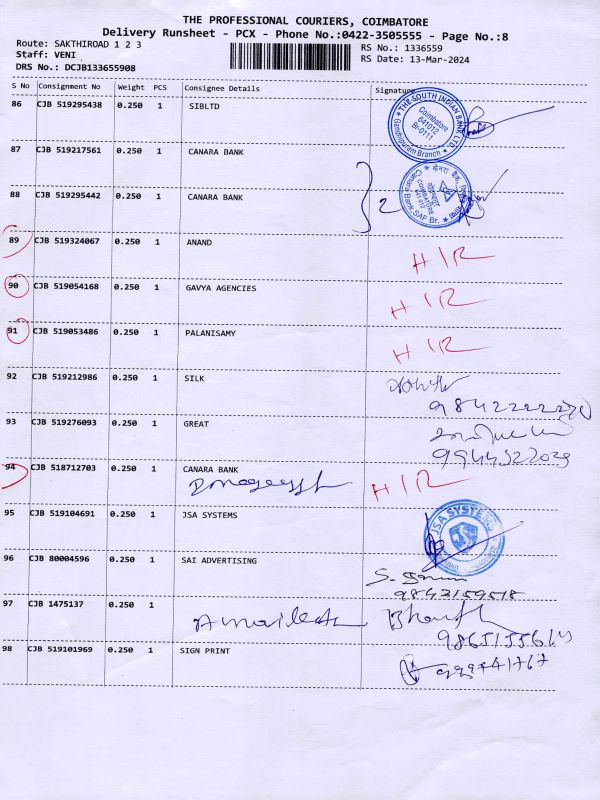 THE PROFESSIONAL COURIERS, COIMBATORE
Delivery Runsheet - PCX - Phone No.:0422-3505555 - Page No.:8
Route: SAKTHIROAD 1 2 3
RS No.: 1336559
Staff: VENI
RS Date: 13-Mar-2024
DRS No.: DCJB133655908
S No Consignment No Weight PCS Consignee Details Signature
86 CJB 519295438 0.250 1 SIBLTD
THE SOUTH INDIAN BANK LTD.
Coimbatore
641012
Br-0111
Gandhipuram Branch
87 CJB 519217561 0.250 1 CANARA BANK
88 CJB 519295442 0.250 1 CANARA BANK 2
केनरा बैंक
COIMBATORE
641 012
Canara Bank, SAF Br.
89 CJB 519324067 0.250 1 ANAND H/R
90 CJB 519054168 0.250 1 GAVYA AGENCIES H/R
91 CJB 519053486 0.250 1 PALANISAMY H/R
92 CJB 519212986 0.250 1 SILK
93 CJB 519276093 0.250 1 GREAT
94 CJB 518712703 0.250 1 CANARA BANK H/R
95 CJB 519104691 0.250 1 JSA SYSTEMS
JSA SYSTEMS
96 CJB 80004596 0.250 1 SAI ADVERTISING
9843159518
97 CJB 1475137 0.250 1
98 CJB 519101969 0.250 1 SIGN PRINT